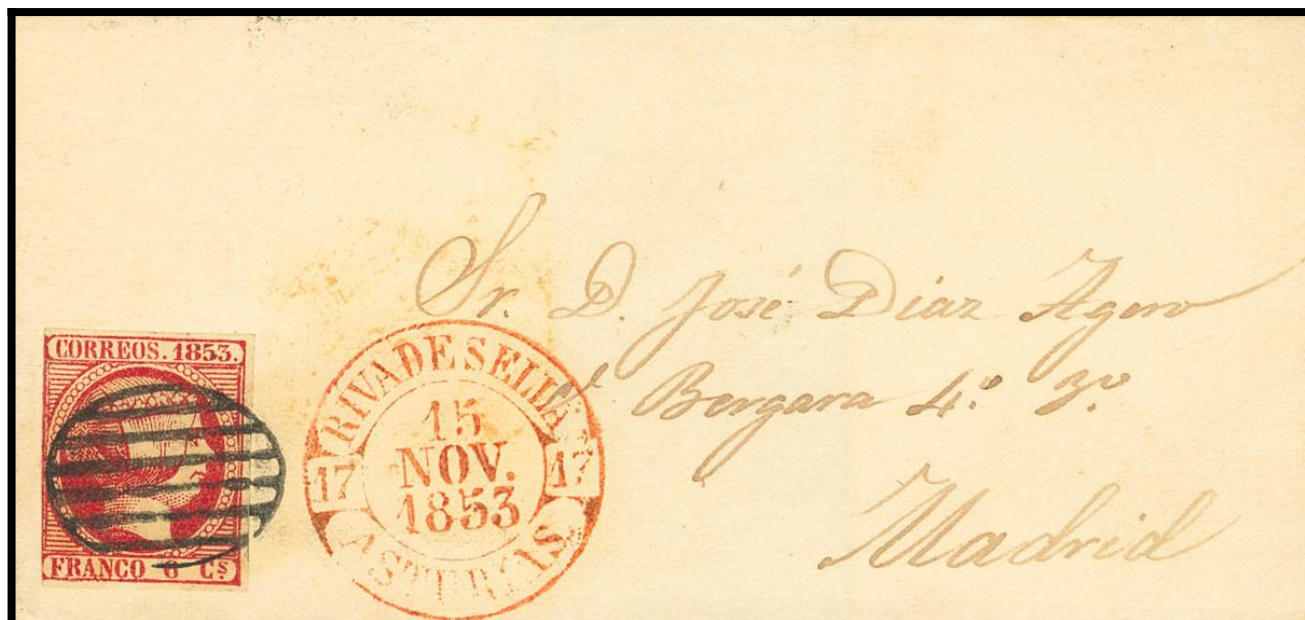 CORREOS. 1853.
FRANCO 6 Cs
RIVADESELLA
17 17
15
NOV.
1853
ASTURIAS.
Sr. D. José Diaz Agero
Bergara 4.º 3.º
Madrid